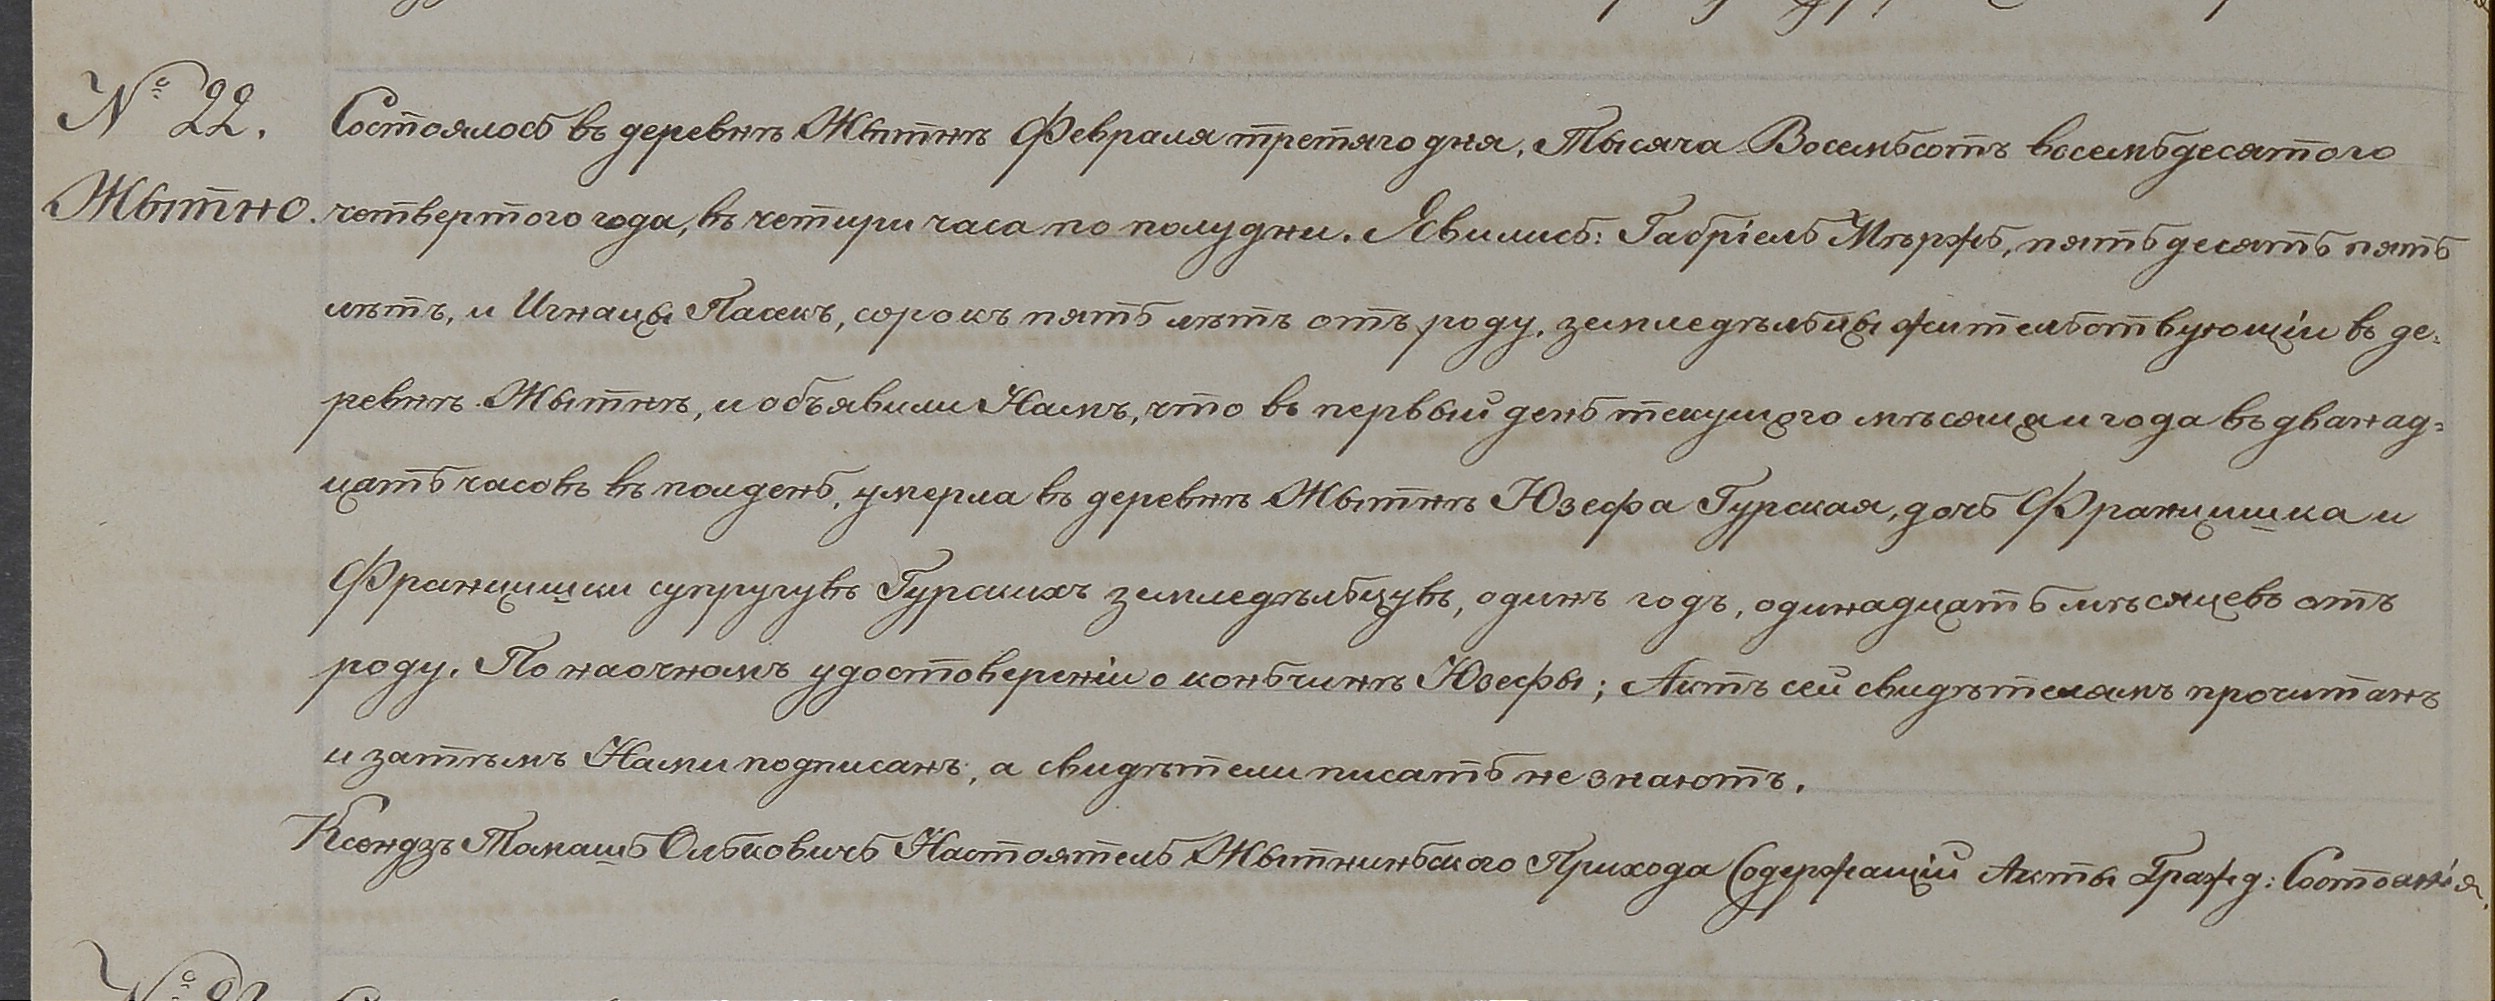 № 22.
Жытно.
Состоялось въ деревнѣ Жытнѣ Февраля третяго дня, Тысяча Восемьсотъ восемьдесятого
четвертого года, въ четири часа по полудни. Явились: Габріель Мѣржъ, пятьдесятъ пять
лѣтъ, и Игнацы Пасекъ, сорокъ пять лѣтъ отъ роду, земледѣльцы жительствующіи въ де=
ревнѣ Жытнѣ, и объявили Намъ, что въ первый день текущого мѣсяца и года въ дванад=
цать часовъ въ полдень, умерла въ деревнѣ Жытнѣ Юзефа Гурская, дочь Францишка и
Францишки супругувъ Гурскихъ земледѣльцувъ, одинъ годъ, одинадцать мѣсяцевъ отъ
роду. По наочномъ удостовереніи о коньчинѣ Юзефы; Актъ сей свидѣтелямъ прочитанъ
и затѣмъ Нами подписанъ, а свидѣтели писать не знаютъ.
Ксендзъ Томашъ Ольковичъ Настоятель Жытниньского Прихода Содержащій Акты Гражд: Состоянія.